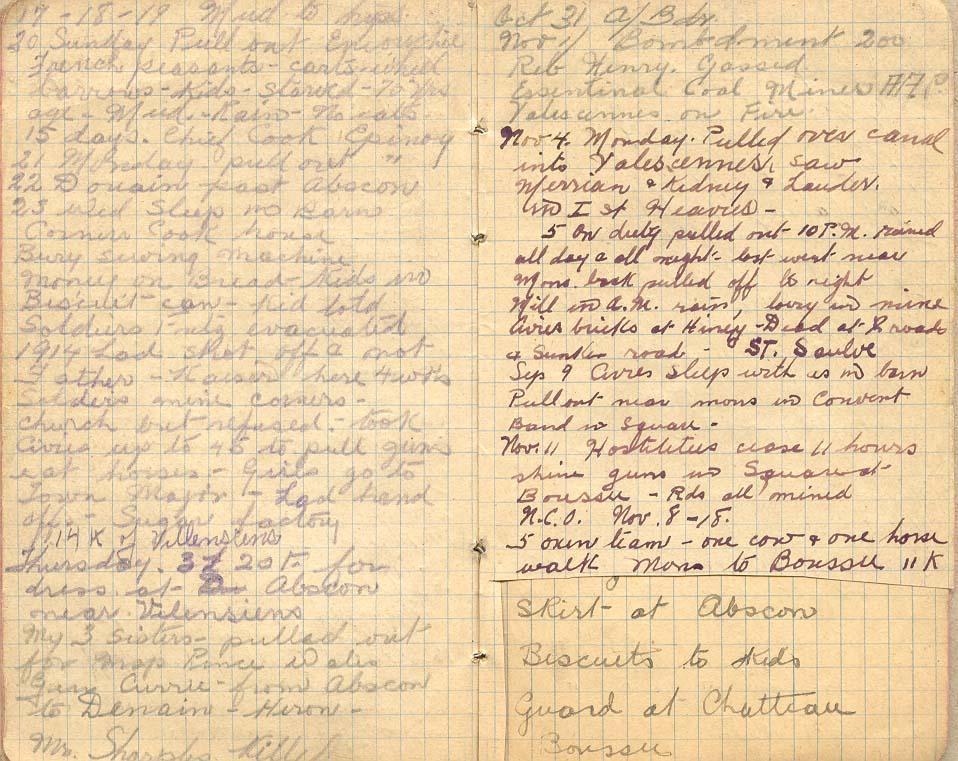 17 - 18 - 19 Mud to
20 Sunday Pull out
French peasants - carts wheel
barrows - Kids - starved - 70 yrs
age - Mud - Rain - No eats
15 days. Chief Cook Epinoy
21 Monday - pull out "
22 Douain past Abscon
23 Wed Sleep in Barn
Corner Cook house
Bury sewing machine
Money on Bread - Kids in
Biscuit can - Kid told
Soldiers Fritz evacuated
1914 Lad shot off a
Father - Kaiser here 4 wks
Solders mine corners -
Church but refused - took
Civies up to 45 to pull guns
eat horses - Girls go to
Town Major - Lad hand
off - Sugar factory
14 K of Vilensiens
Thursday. 31 20 F. for
dress at Abscon
near Vilensiens
My 3 sisters - pulled out
for Map Prince Wales
Gen Currie - from Abscon
to Denain - Heron -
Mr. Sharples Killed
Oct 31 A/Bdr
Nov 1/ Bombdment 200
Reb Henry. Gassed
Essentinal Coal Miner
Valescennes on Fire
Nov 4. Monday. Pulled over canal
into Valescennes, saw
Merrian & Kidney & Lauder.
in I st Heavies -
5 On duty pulled out 10 P.M. rained
all day & all night - lost went near
Mons. back pulled off to right
Will in a.m. rain, lorry in mine
Civies bucks at Hiney - Dead at X roads
& Sunken road - ST. Saulve
Sep 9 Civies Sleep with us in barn
Pull out near mons in Convent
Band in Square -
Nov. 11 Hostilities cease 11 hours
shine guns in Square at
Boussu - Rds all mined
N.C.O. Nov. 8 - 18.
5 oxen team - one cow & one horse
walk Mons to Boussu 11 K
Skirt at Abscon
Biscuits to Kids
Guard at Chatteau
Boussu